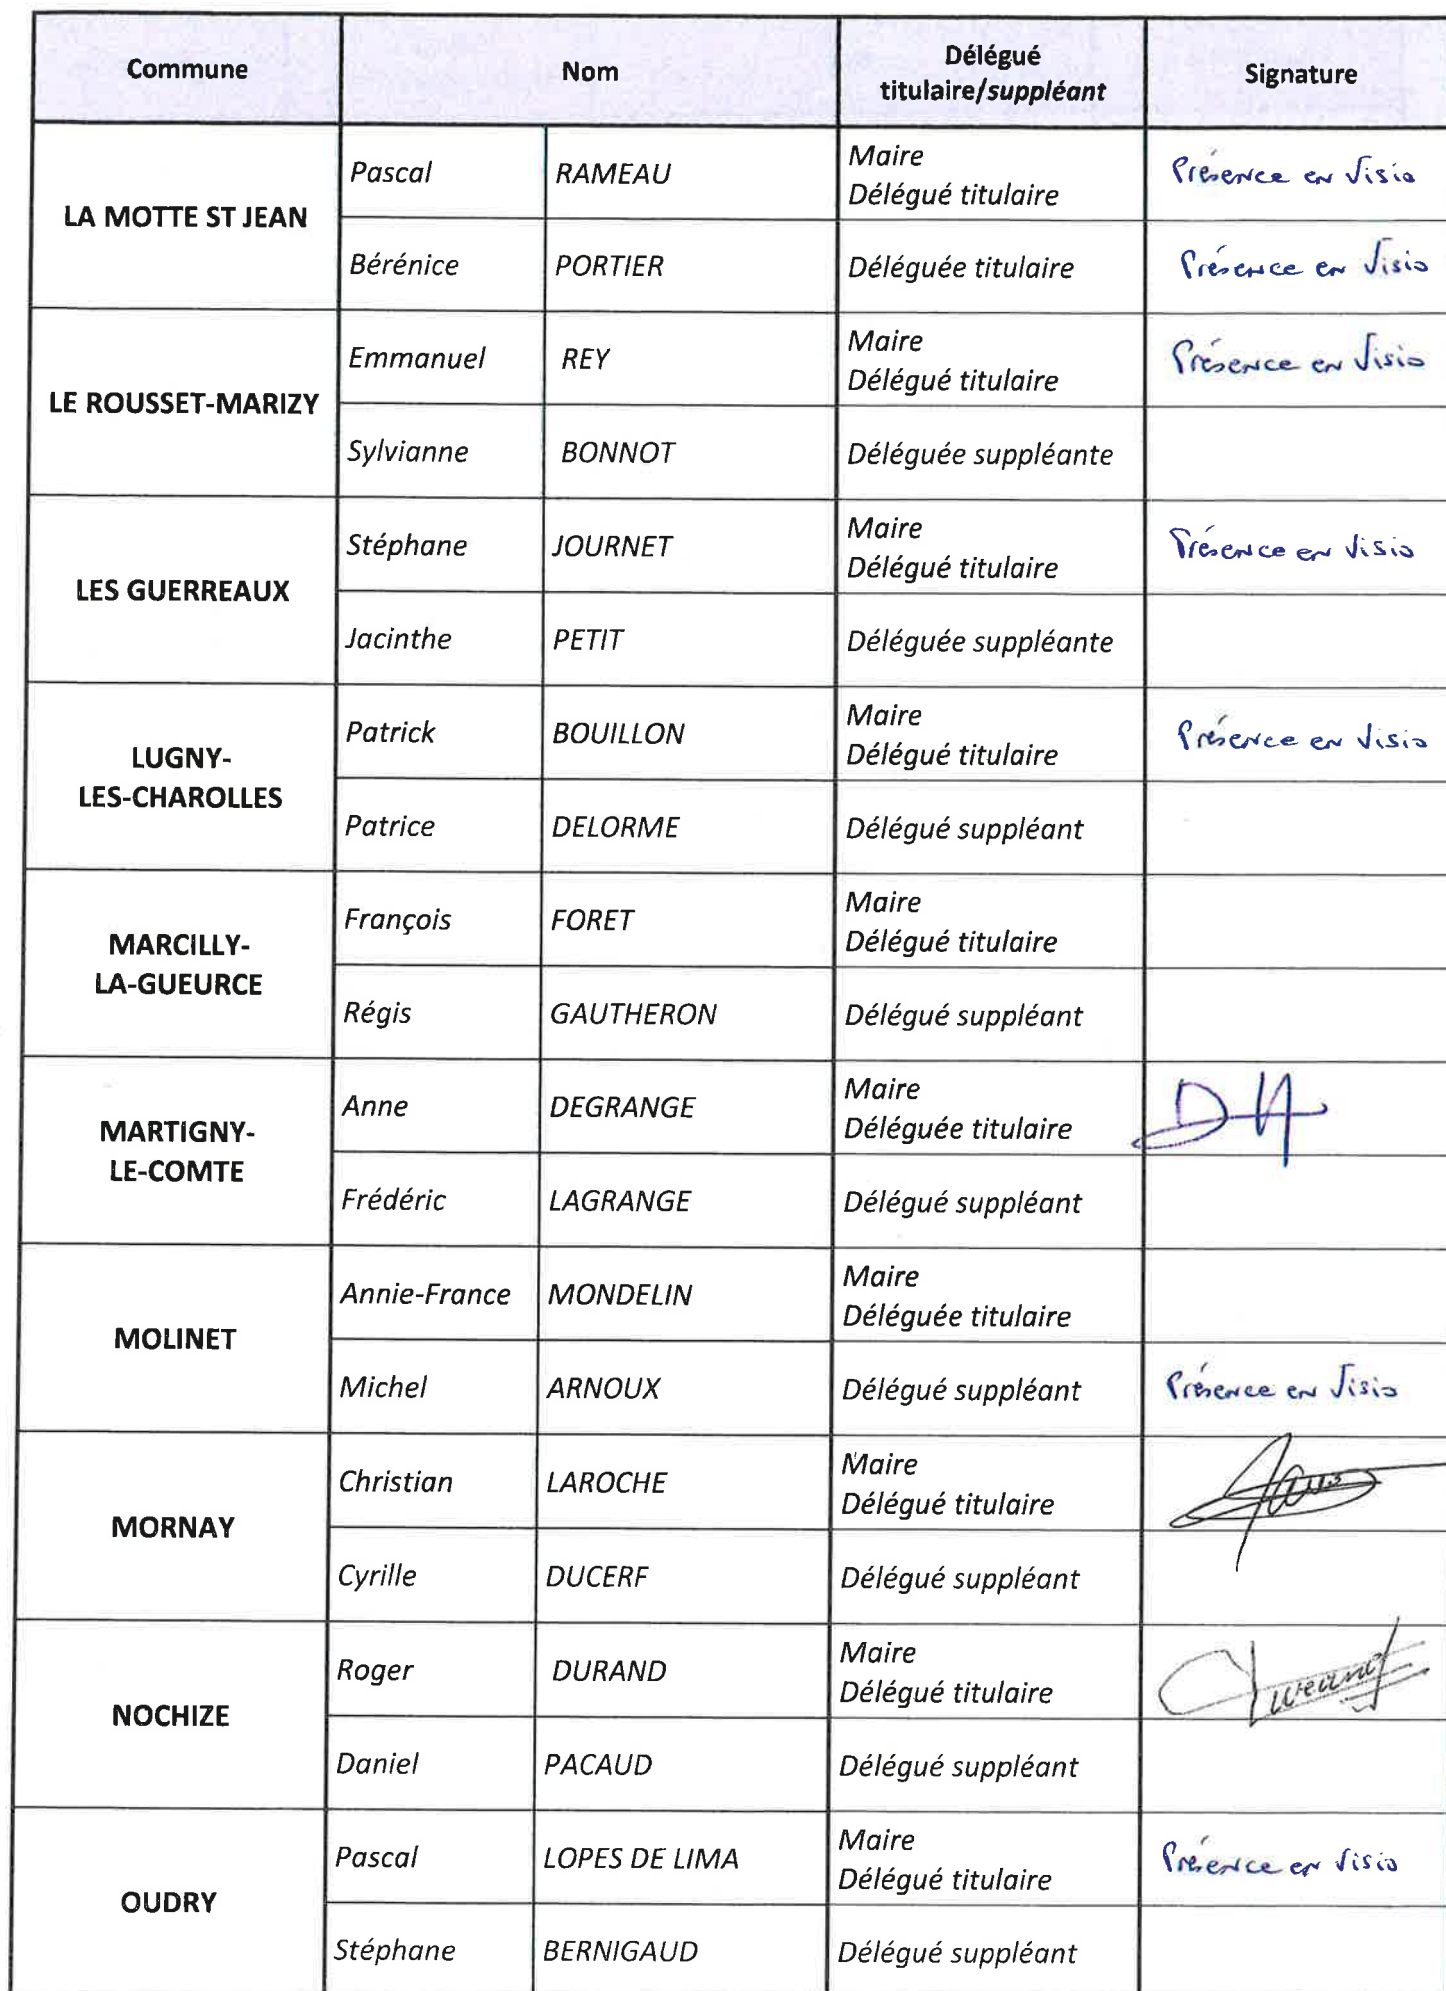 Commune
Nom
Délégué
titulaire/suppléant
Signature
LA MOTTE ST JEAN
Pascal
RAMEAU
Maire
Délégué titulaire
Présence en Visio
Bérénice
PORTIER
Déléguée titulaire
Présence en Visio
LE ROUSSET-MARIZY
Emmanuel
REY
Maire
Délégué titulaire
Présence en Visio
Sylvianne
BONNOT
Déléguée suppléante
LES GUERREAUX
Stéphane
JOURNET
Maire
Délégué titulaire
Présence en Visio
Jacinthe
PETIT
Déléguée suppléante
LUGNY-
LES-CHAROLLES
Patrick
BOUILLON
Maire
Délégué titulaire
Présence en Visio
Patrice
DELORME
Délégué suppléant
MARCILLY-
LA-GUEURCE
François
FORET
Maire
Délégué titulaire
Régis
GAUTHERON
Délégué suppléant
MARTIGNY-
LE-COMTE
Anne
DEGRANGE
Maire
Déléguée titulaire
Frédéric
LAGRANGE
Délégué suppléant
MOLINET
Annie-France
MONDELIN
Maire
Déléguée titulaire
Michel
ARNOUX
Délégué suppléant
Présence en Visio
MORNAY
Christian
LAROCHE
Maire
Délégué titulaire
Cyrille
DUCERF
Délégué suppléant
NOCHIZE
Roger
DURAND
Maire
Délégué titulaire
Durand
Daniel
PACAUD
Délégué suppléant
OUDRY
Pascal
LOPES DE LIMA
Maire
Délégué titulaire
Présence en Visio
Stéphane
BERNIGAUD
Délégué suppléant